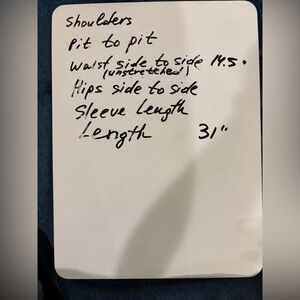 Shoulders
Pit to pit
Waist side to side 14.5"
(unstretched)
Hips side to side
Sleeve Length
Length 31"